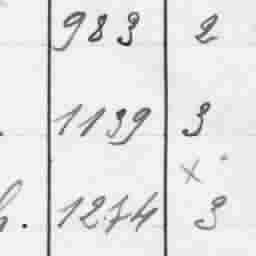 983 2
. 1139 3
x
h. 1274 3